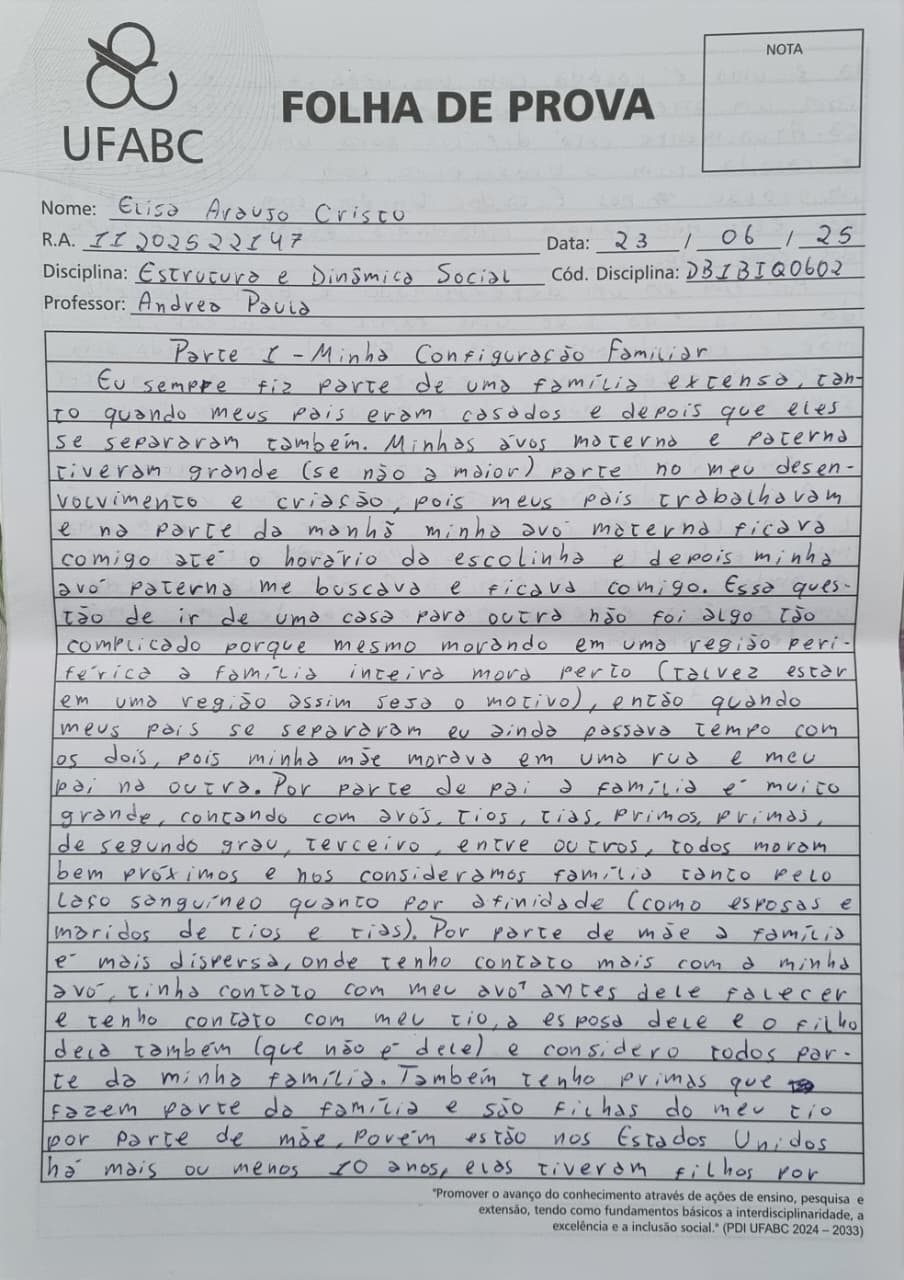 UFABC
FOLHA DE PROVA
NOTA
Nome: Elisa Araujo Cristo
R.A. 11202522147 Data: 23 / 06 / 25
Disciplina: Estrutura e Dinâmica Social Cód. Disciplina: DBIBIQ0602
Professor: Andrea Paula
Parte I - Minha Configuração Familiar
Eu sempre fiz parte de uma família extensa, tan-
to quando meus pais eram casados e depois que eles
se separaram também. Minhas ávos materna e paterna
tiveram grande (se não a maior) parte no meu desen-
volvimento e criação, pois meus pais trabalhavam
e na parte da manhã minha avó materna ficava
comigo até o horário da escolinha e depois minha
avó paterna me buscava e ficava comigo. Essa ques-
tão de ir de uma casa para outra não foi algo tão
complicado porque mesmo morando em uma região peri-
férica a família inteira mora perto (talvez estar
em uma região assim seja o motivo), então quando
meus pais se separaram eu ainda passava tempo com
os dois, pois minha mãe morava em uma rua e meu
pai na outra. Por parte de pai a família é muito
grande, contando com avós, tios, tias, primos, primas,
de segundo grau, terceiro, entre outros, todos moram
bem próximos e nos consideramos família tanto pelo
laço sanguíneo quanto por afinidade (como esposas e
maridos de tios e tias). Por parte de mãe a família
é mais dispersa, onde tenho contato mais com a minha
avó, tinha contato com meu avô antes dele falecer
e tenho contato com meu tio, a esposa dele e o filho
dela também (que não é dele) e considero todos par-
te da minha família. Também tenho primas que
fazem parte da família e são filhas do meu tio
por parte de mãe, porém estão nos Estados Unidos
há mais ou menos 10 anos, elas tiveram filhos por
"Promover o avanço do conhecimento através de ações de ensino, pesquisa e
extensão, tendo como fundamentos básicos a interdisciplinaridade, a
excelência e a inclusão social." (PDI UFABC 2024 – 2033)